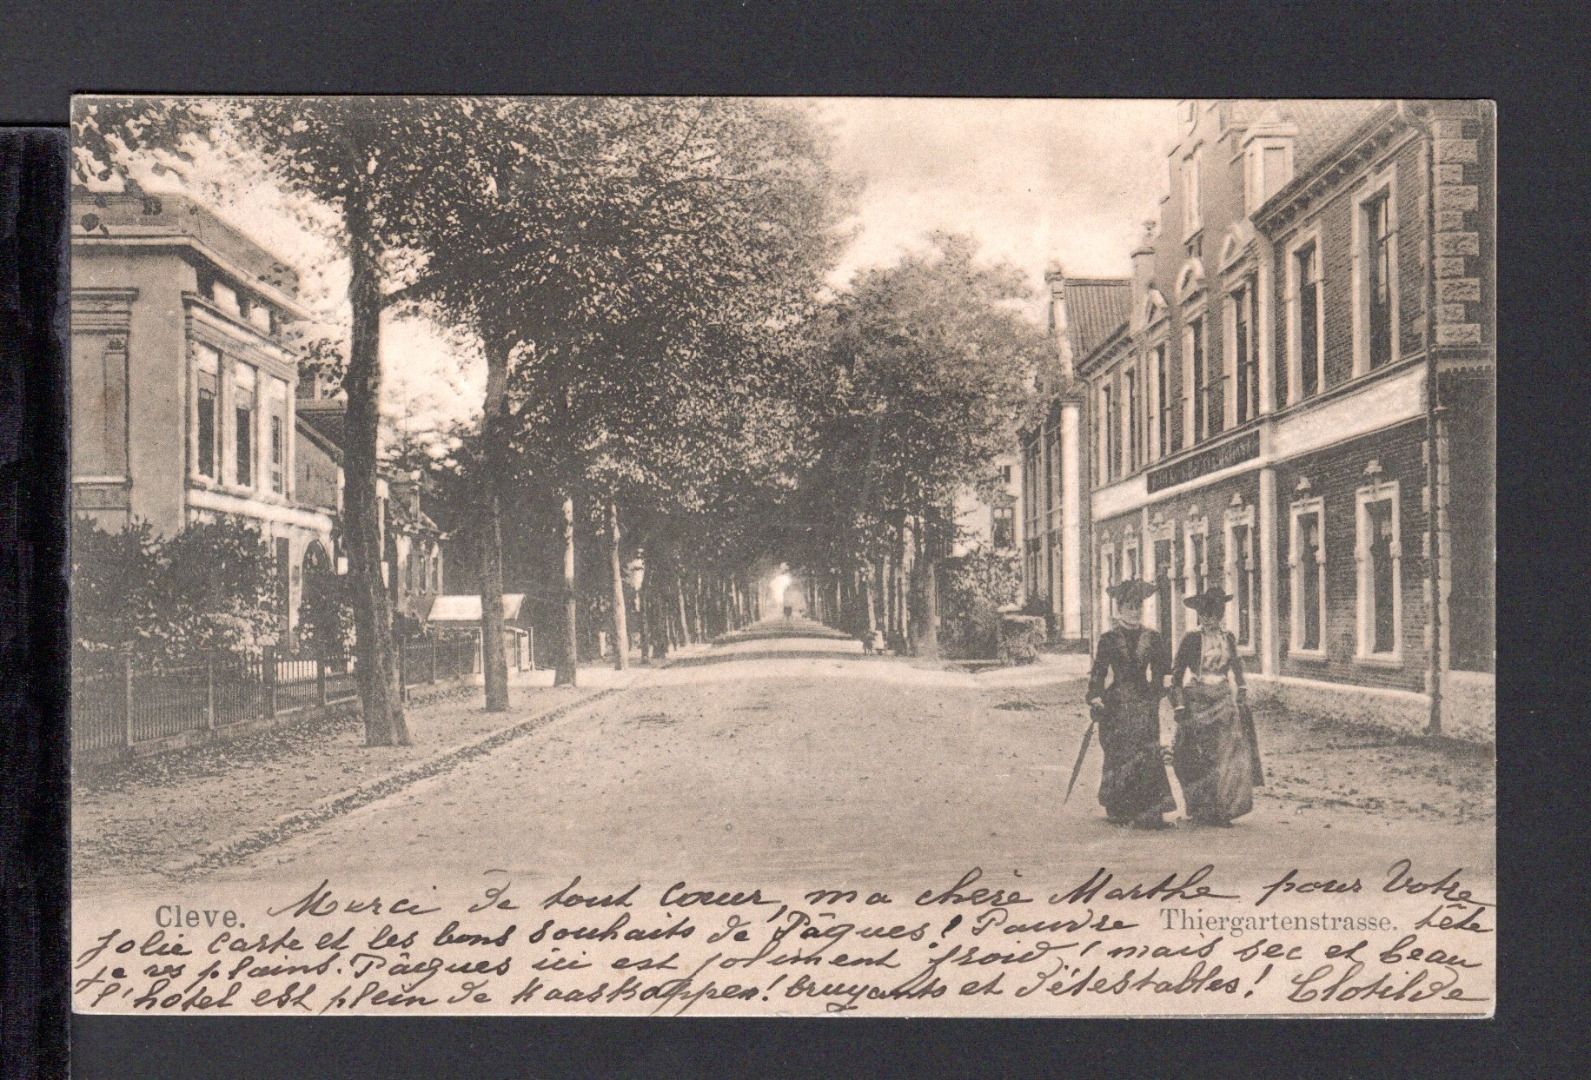 Cleve. Merci de tout cœur, ma chère Marthe pour Votre
jolie Carte et les bons souhaits de Pâques! Pauvre Thiergartenstrasse. tête
je plains. Pâques ici est joliment froid! mais sec et beau
l'hôtel est plein de Kaaskoppen! bruyants et détestables! Clotilde